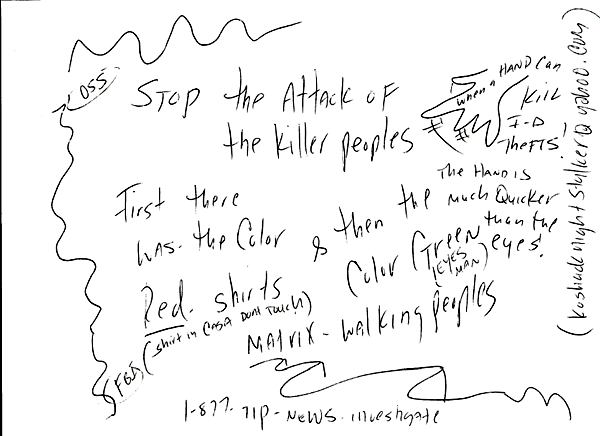 OSS
STOP the Attack OF
the Killer peoples
when a HAND Can
Kill
I-D
TheFTS!
The HAND is
much Quicker
than the
eyes!
First there
was - the Color
Red - shirts
(shirt in CASA DONT Touch)
& then the
Color Green
(EYES
MAN)
MATRIX - walking peoples
FBI
1-877- TIP - News - investigate